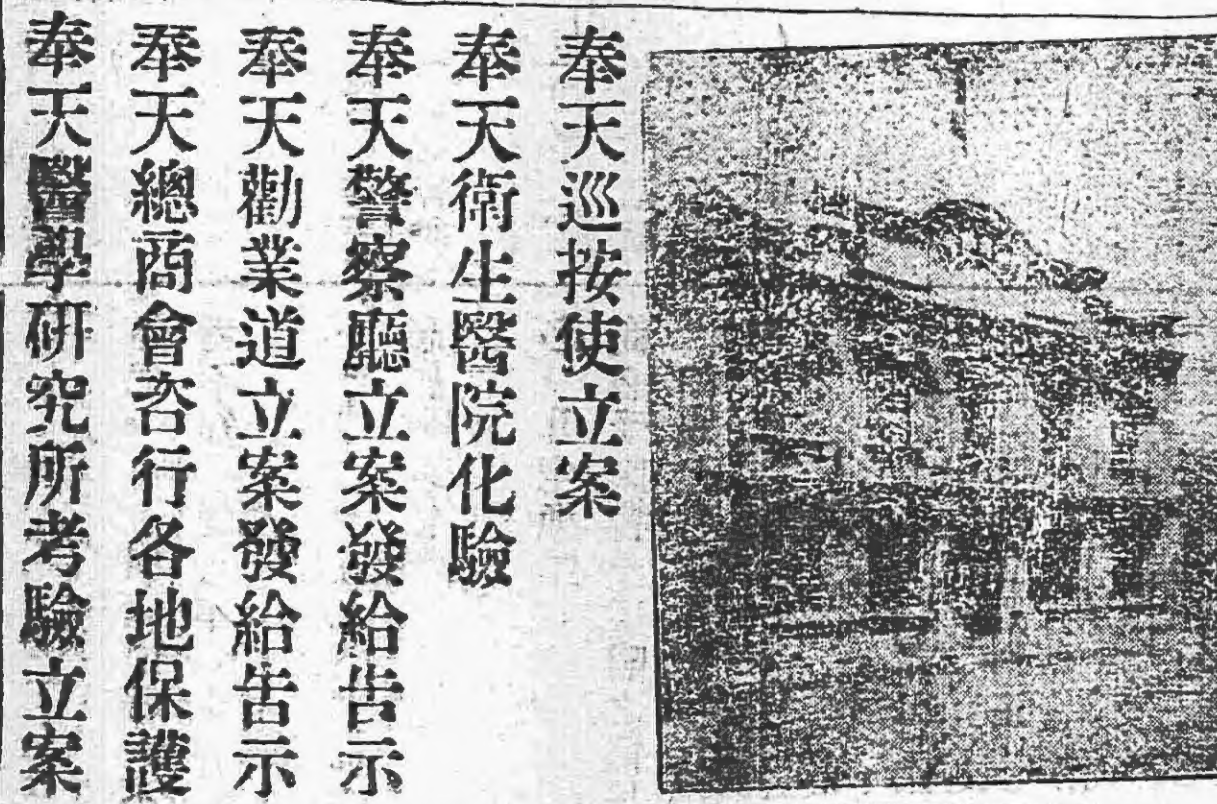 奉天巡按使立案
奉天衛生醫院化驗
奉天警察廳立案發給告示
奉天勸業道立案發給告示
奉天總商會咨行各地保護
奉天醫學研究所考驗立案